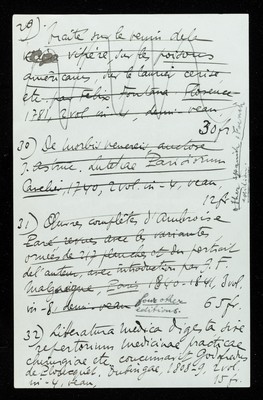 29) Traité sur le venin de la
vipère, sur les poisons
américains, sur le laurier cerise
etc. par Felix Fontana Florence
1781, 2 vol in-4, demi-veau
30 fr
30) De morbis venereis auctore
J. Astruc. Lutetiae Parisiorum
Cavelier, 1740, 2 vol. in-4, veau.
12 fr.
31) Œuvres complètes d'Ambroise
Paré revues avec les variantes
ornées de 217 planches et du portrait
de l'auteur, avec introduction par J. F.
Malgaigne, Paris 1840-1841, 3 vol.
in-8. demi-veau four other
editions. 65 fr.
32) Literatura medica digesta sive
repertorium medicinae practicae
chirurgiae etc concinnavit Godofredus
de Ploucquet, Tubingae, 1808-9, 2 vol.
in-4, veau, 15 fr.